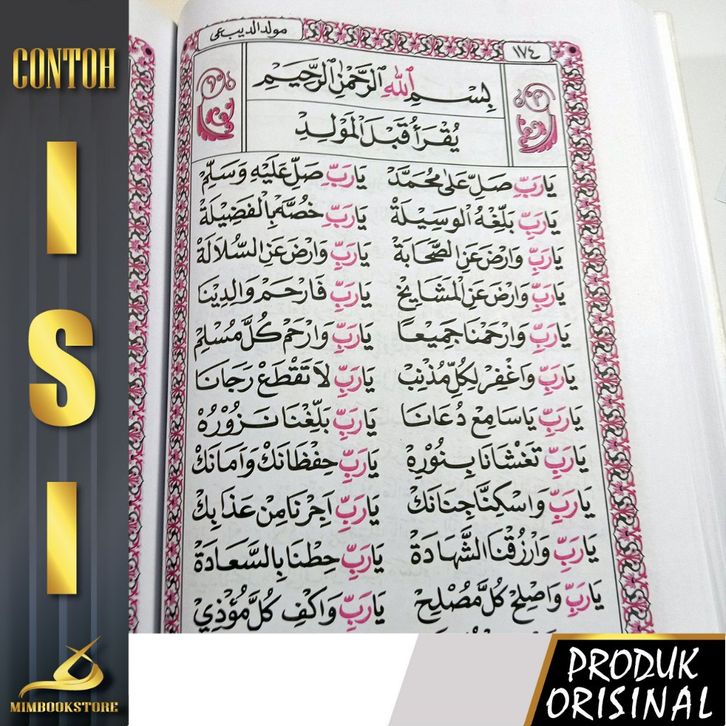 CONTOH
I
S
I
MIMBOOKSTORE
١٧٤
مولد الديبعي
بِسْمِ اللهِ الرَّحْمٰنِ الرَّحِيْمِ
يُقْرَأُ قَبْلَ الْمَوْلِدِ
يَارَبِّ صَلِّ عَلٰى مُحَمَّدْ يَارَبِّ صَلِّ عَلَيْهِ وَسَلِّمْ
يَارَبِّ بَلِّغْهُ الْوَسِيْلَةْ يَارَبِّ خُصَّهُ بِالْفَضِيْلَةْ
يَارَبِّ وَارْضَ عَنِ الصَّحَابَةْ يَارَبِّ وَارْضَ عَنِ السُّلَالَةْ
يَارَبِّ وَارْضَ عَنِ الْمَشَايِخْ يَارَبِّ فَارْحَمْ وَالِدِيْنَا
يَارَبِّ وَارْحَمْنَا جَمِيْعًا يَارَبِّ وَارْحَمْ كُلَّ مُسْلِمْ
يَارَبِّ وَاغْفِرْ لِكُلِّ مُذْنِبْ يَارَبِّ لَا تَقْطَعْ رَجَانَا
يَارَبِّ يَاسَامِعْ دُعَانَا يَارَبِّ بَلِّغْنَا نَزُوْرُهْ
يَارَبِّ تَغْشَانَا بِنُوْرِهْ يَارَبِّ حِفْظَانَكْ وَاَمَانَكْ
يَارَبِّ وَاسْكِنَّا جِنَانَكْ يَارَبِّ اَجِرْنَا مِنْ عَذَابِكْ
يَارَبِّ وَارْزُقْنَا الشَّهَادَةْ يَارَبِّ حِطْنَا بِالسَّعَادَةْ
يَارَبِّ وَاصْلِحْ كُلَّ مُصْلِحْ يَارَبِّ وَاكْفِ كُلَّ مُؤْذِيْ
PRODUK
ORISINAL